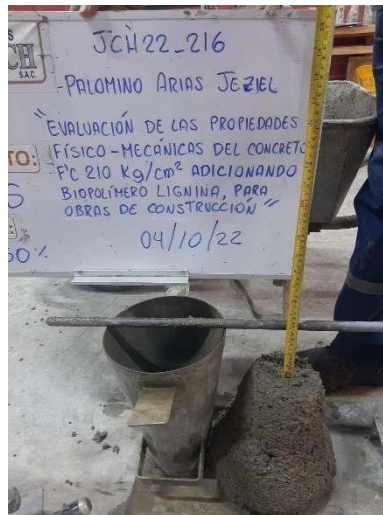 JCH22_216
S.A.C.
-PALOMINO ARIAS JEZIEL
"EVALUACIÓN DE LAS PROPIEDADES
FÍSICO-MECÁNICAS DEL CONCRETO
F'C 210 Kg/cm² ADICIONANDO
BIOPOLÍMERO LIGNINA, PARA
OBRAS DE CONSTRUCCIÓN"
04/10/22